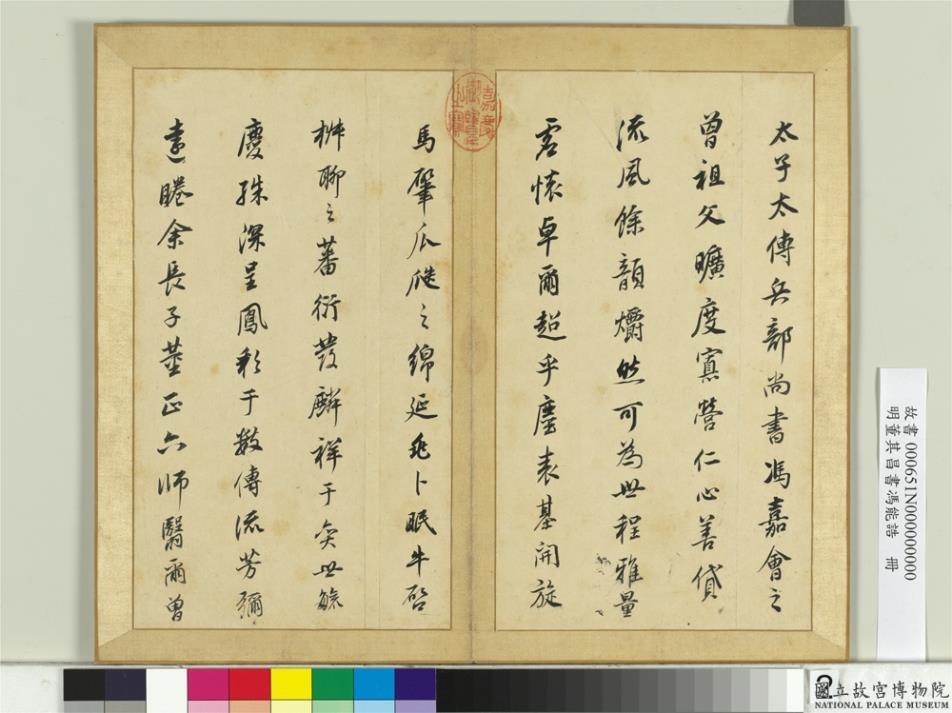 太子太傅兵部尚書馮嘉會之
曾祖父曠度寡營仁心善貸
流風餘韻爝然可為世程雅量
虛懷卓爾超乎塵表基開旋
馬肇瓜瓞之綿延兆卜眠牛啓
椒聊之蕃衍發麟祥于奕世毓
慶殊深呈鳳彩于數傳流芳彌
遠睠余長子莖正六師翳爾曾
嘉慶御覽之寶
故書 000651N000000000
明董其昌書馮能誥 冊
國立故宮博物院
NATIONAL PALACE MUSEUM